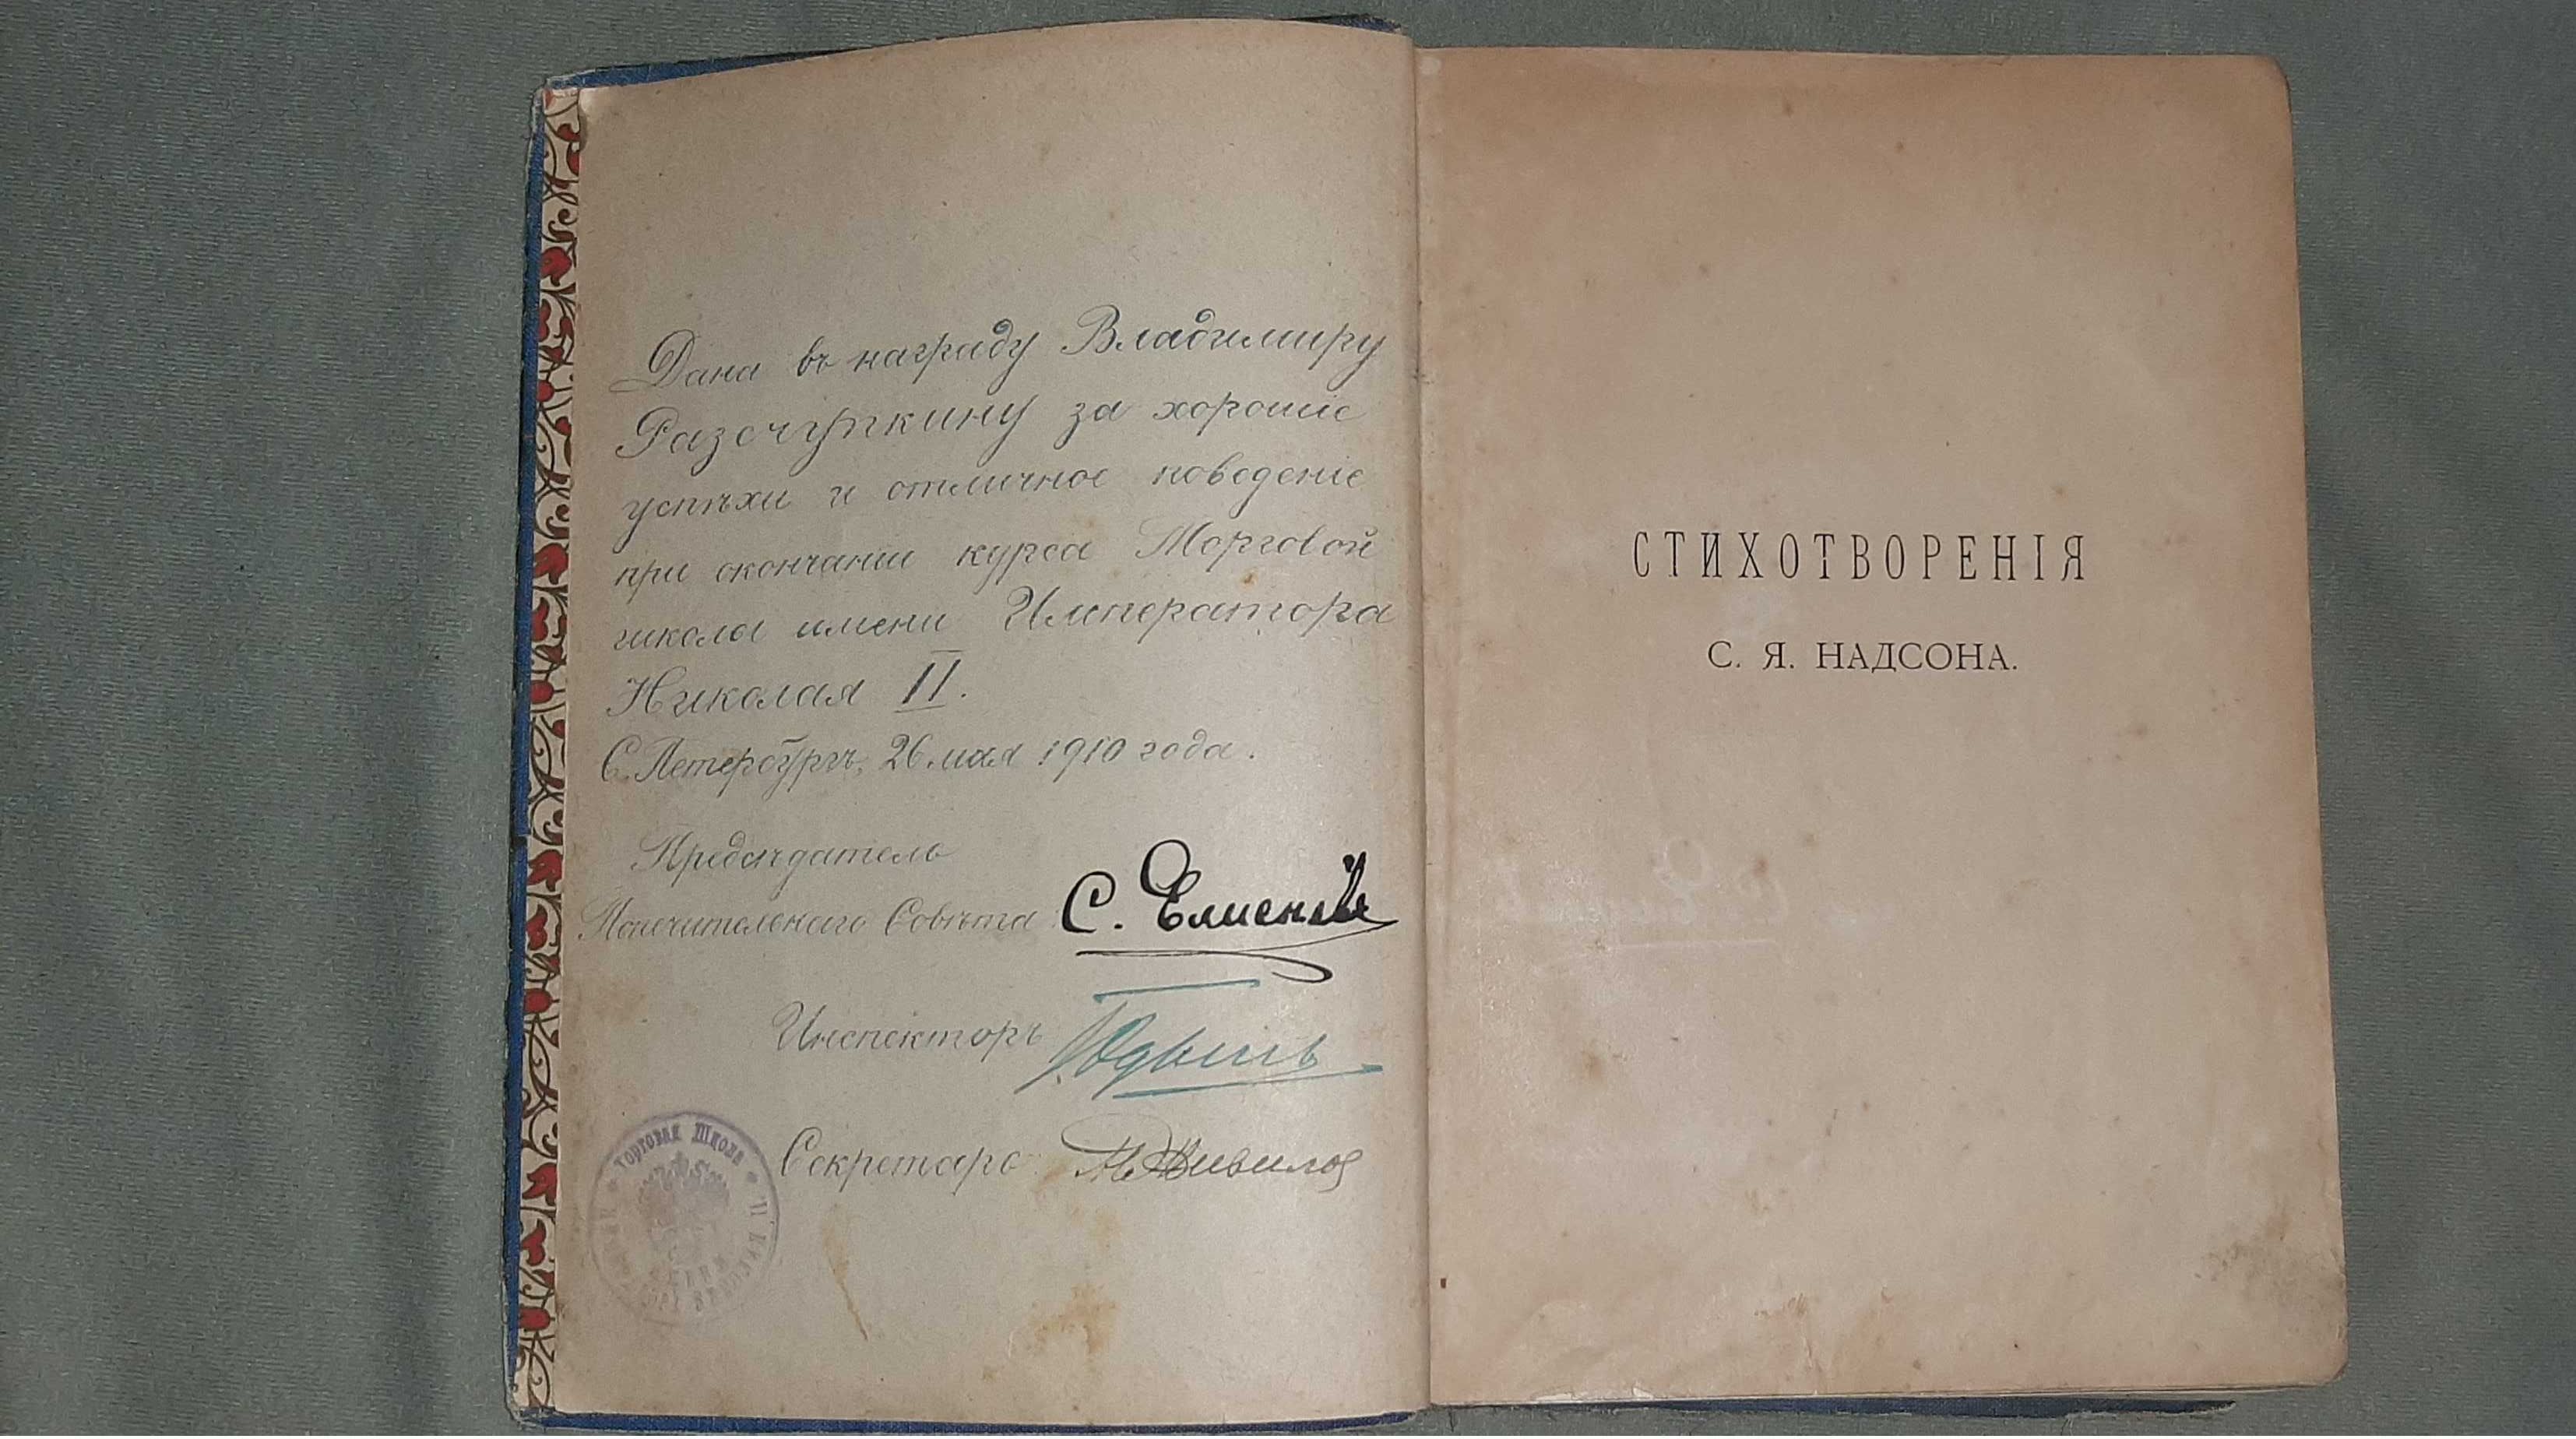 Дана въ награду Владимиру
Разсчупкину за хорошіе
успѣхи и отличное поведеніе
при окончаніи курса Торговой
школы имени Императора
Николая II.
С. Петербургъ, 26 мая 1910 года.
Предсѣдатель
Попечительнаго Совѣта С.
Инспекторъ
Секретарь
Торговая Школа
СТИХОТВОРЕНІЯ
С. Я. НАДСОНА.